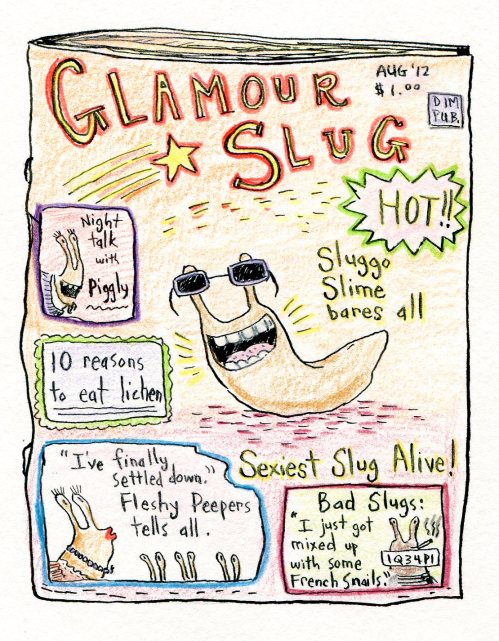 GLAMOUR
SLUG
AUG '12
$1.00
DIM
PUB.
HOT!!
Night
talk
with
Piggly
Sluggo
Slime
bares all
10 reasons
to eat lichen
Sexiest Slug Alive!
"I've finally
settled down."
Fleshy Peepers
tells all.
Bad Slugs:
"I just got
mixed up
with some
French Snails."
1Q34P1